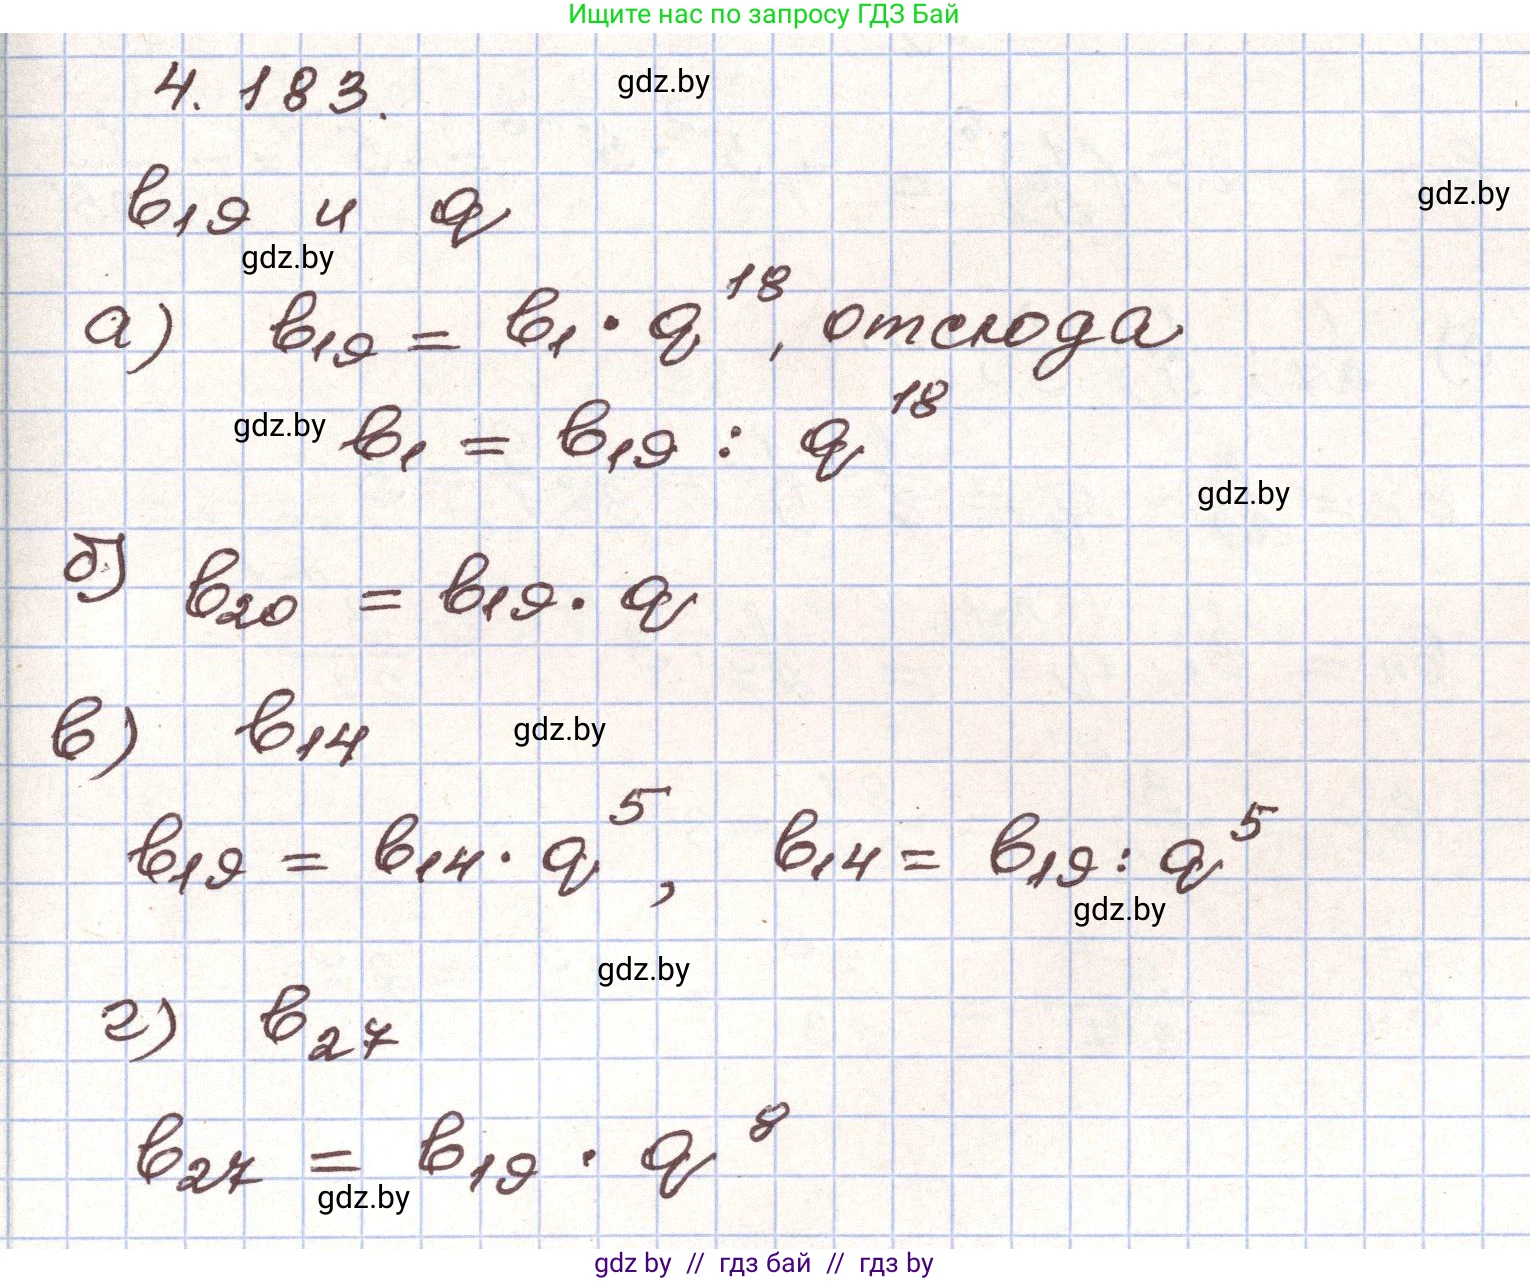 Ищите нас по запросу ГДЗ Бай
4.183.
gdz.by
b₁₉ и q
gdz.by
gdz.by
а) b₁₉ = b₁ · q¹⁸, отсюда
gdz.by
b₁ = b₁₉ : q¹⁸
gdz.by
б) b₂₀ = b₁₉ · q
в) b₁₄
gdz.by
b₁₉ = b₁₄ · q⁵, b₁₄ = b₁₉ : q⁵
gdz.by
gdz.by
г) b₂₇
b₂₇ = b₁₉ · q⁸
gdz.by
gdz by // гдз бай // гдз by